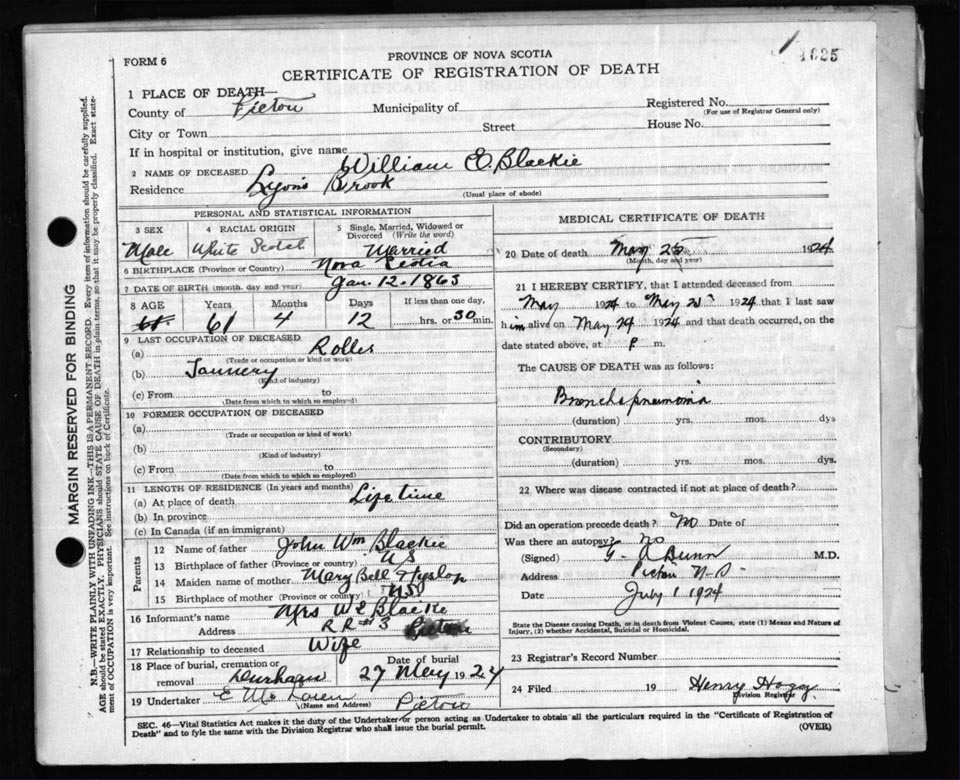 FORM 6
PROVINCE OF NOVA SCOTIA
CERTIFICATE OF REGISTRATION OF DEATH
1 PLACE OF DEATH—
County of Pictou Municipality of Registered No.
(For use of Registrar General only)
City or Town Street House No.
If in hospital or institution, give name
2 NAME OF DECEASED William E. Blackie
Residence Lyons Brook
(Usual place of abode)
PERSONAL AND STATISTICAL INFORMATION
3 SEX 4 RACIAL ORIGIN 5 Single, Married, Widowed or Divorced (Write the word)
Male White Scotch Married
6 BIRTHPLACE (Province or Country) Nova Scotia
7 DATE OF BIRTH (month, day and year) Jan. 12-1863
8 AGE Years Months Days If less than one day,
61 4 12 hrs. or 30 min.
9 LAST OCCUPATION OF DECEASED
(a) Roller
(Trade or occupation or kind of work)
(b) Tannery
(Kind of industry)
(c) From to
(Date from which to which so employed)
10 FORMER OCCUPATION OF DECEASED
(a)
(Trade or occupation or kind of work)
(b)
(Kind of industry)
(c) From to
(Date from which to which so employed)
11 LENGTH OF RESIDENCE (In years and months)
(a) At place of death Life time
(b) In province
(c) In Canada (if an immigrant)
Parents
12 Name of father John Wm Blackie
13 Birthplace of father (Province or country) N S
14 Maiden name of mother Mary Bell Hyslop
15 Birthplace of mother (Province or country) N.S.
16 Informant's name Mrs W E Blackie
Address R R #3 Pictou
17 Relationship to deceased Wife
18 Place of burial, cremation or removal Durham
Date of burial
27 May 1924
19 Undertaker E McLaren Pictou
(Name and Address)
MEDICAL CERTIFICATE OF DEATH
20 Date of death May 1924
(Month, day and year)
21 I HEREBY CERTIFY, that I attended deceased from
May 1924 to May 1924 that I last saw
him alive on May 24 1924 and that death occurred, on the
date stated above, at P m.
The CAUSE OF DEATH was as follows:
Broncho pneumonia
(duration) yrs. mos. dys
CONTRIBUTORY
(Secondary)
(duration) yrs. mos. dys.
22 Where was disease contracted if not at place of death?
Did an operation precede death? No Date of
Was there an autopsy? No
(Signed) G. A Dunn M.D.
Address Pictou N.S.
Date July 1 1924
State the Disease causing Death, or in death from Violent Causes, state (1) Means and Nature of
Injury, (2) whether Accidental, Suicidal or Homicidal.
23 Registrar's Record Number
24 Filed 19 Henry Hogg
Division Registrar
SEC. 46—Vital Statistics Act makes it the duty of the Undertaker or person acting as Undertaker to obtain all the particulars required in the "Certificate of Registration of
Death" and to fyle the same with the Division Registrar who shall issue the burial permit. (OVER)
MARGIN RESERVED FOR BINDING
N.B.—WRITE PLAINLY WITH UNFADING INK—THIS IS A PERMANENT RECORD. Every item of information should be carefully supplied.
AGE should be stated EXACTLY. PHYSICIANS should STATE CAUSE OF DEATH in plain terms, so that it may be properly classified. Exact state-
ment of OCCUPATION is very important. See instructions on back of Certificate.